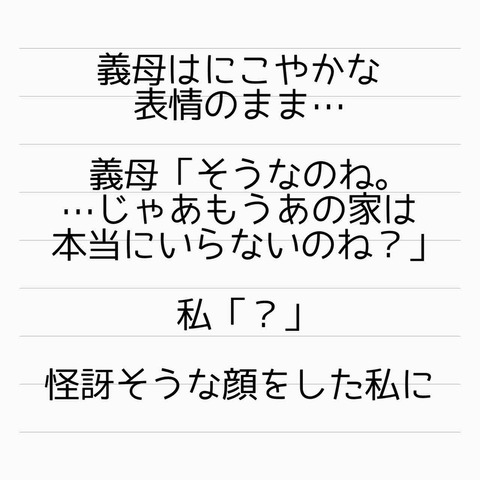 義母はにこやかな
表情のまま…
義母「そうなのね。
…じゃあもうあの家は
本当にいらないのね？」
私「？」
怪訝そうな顔をした私に